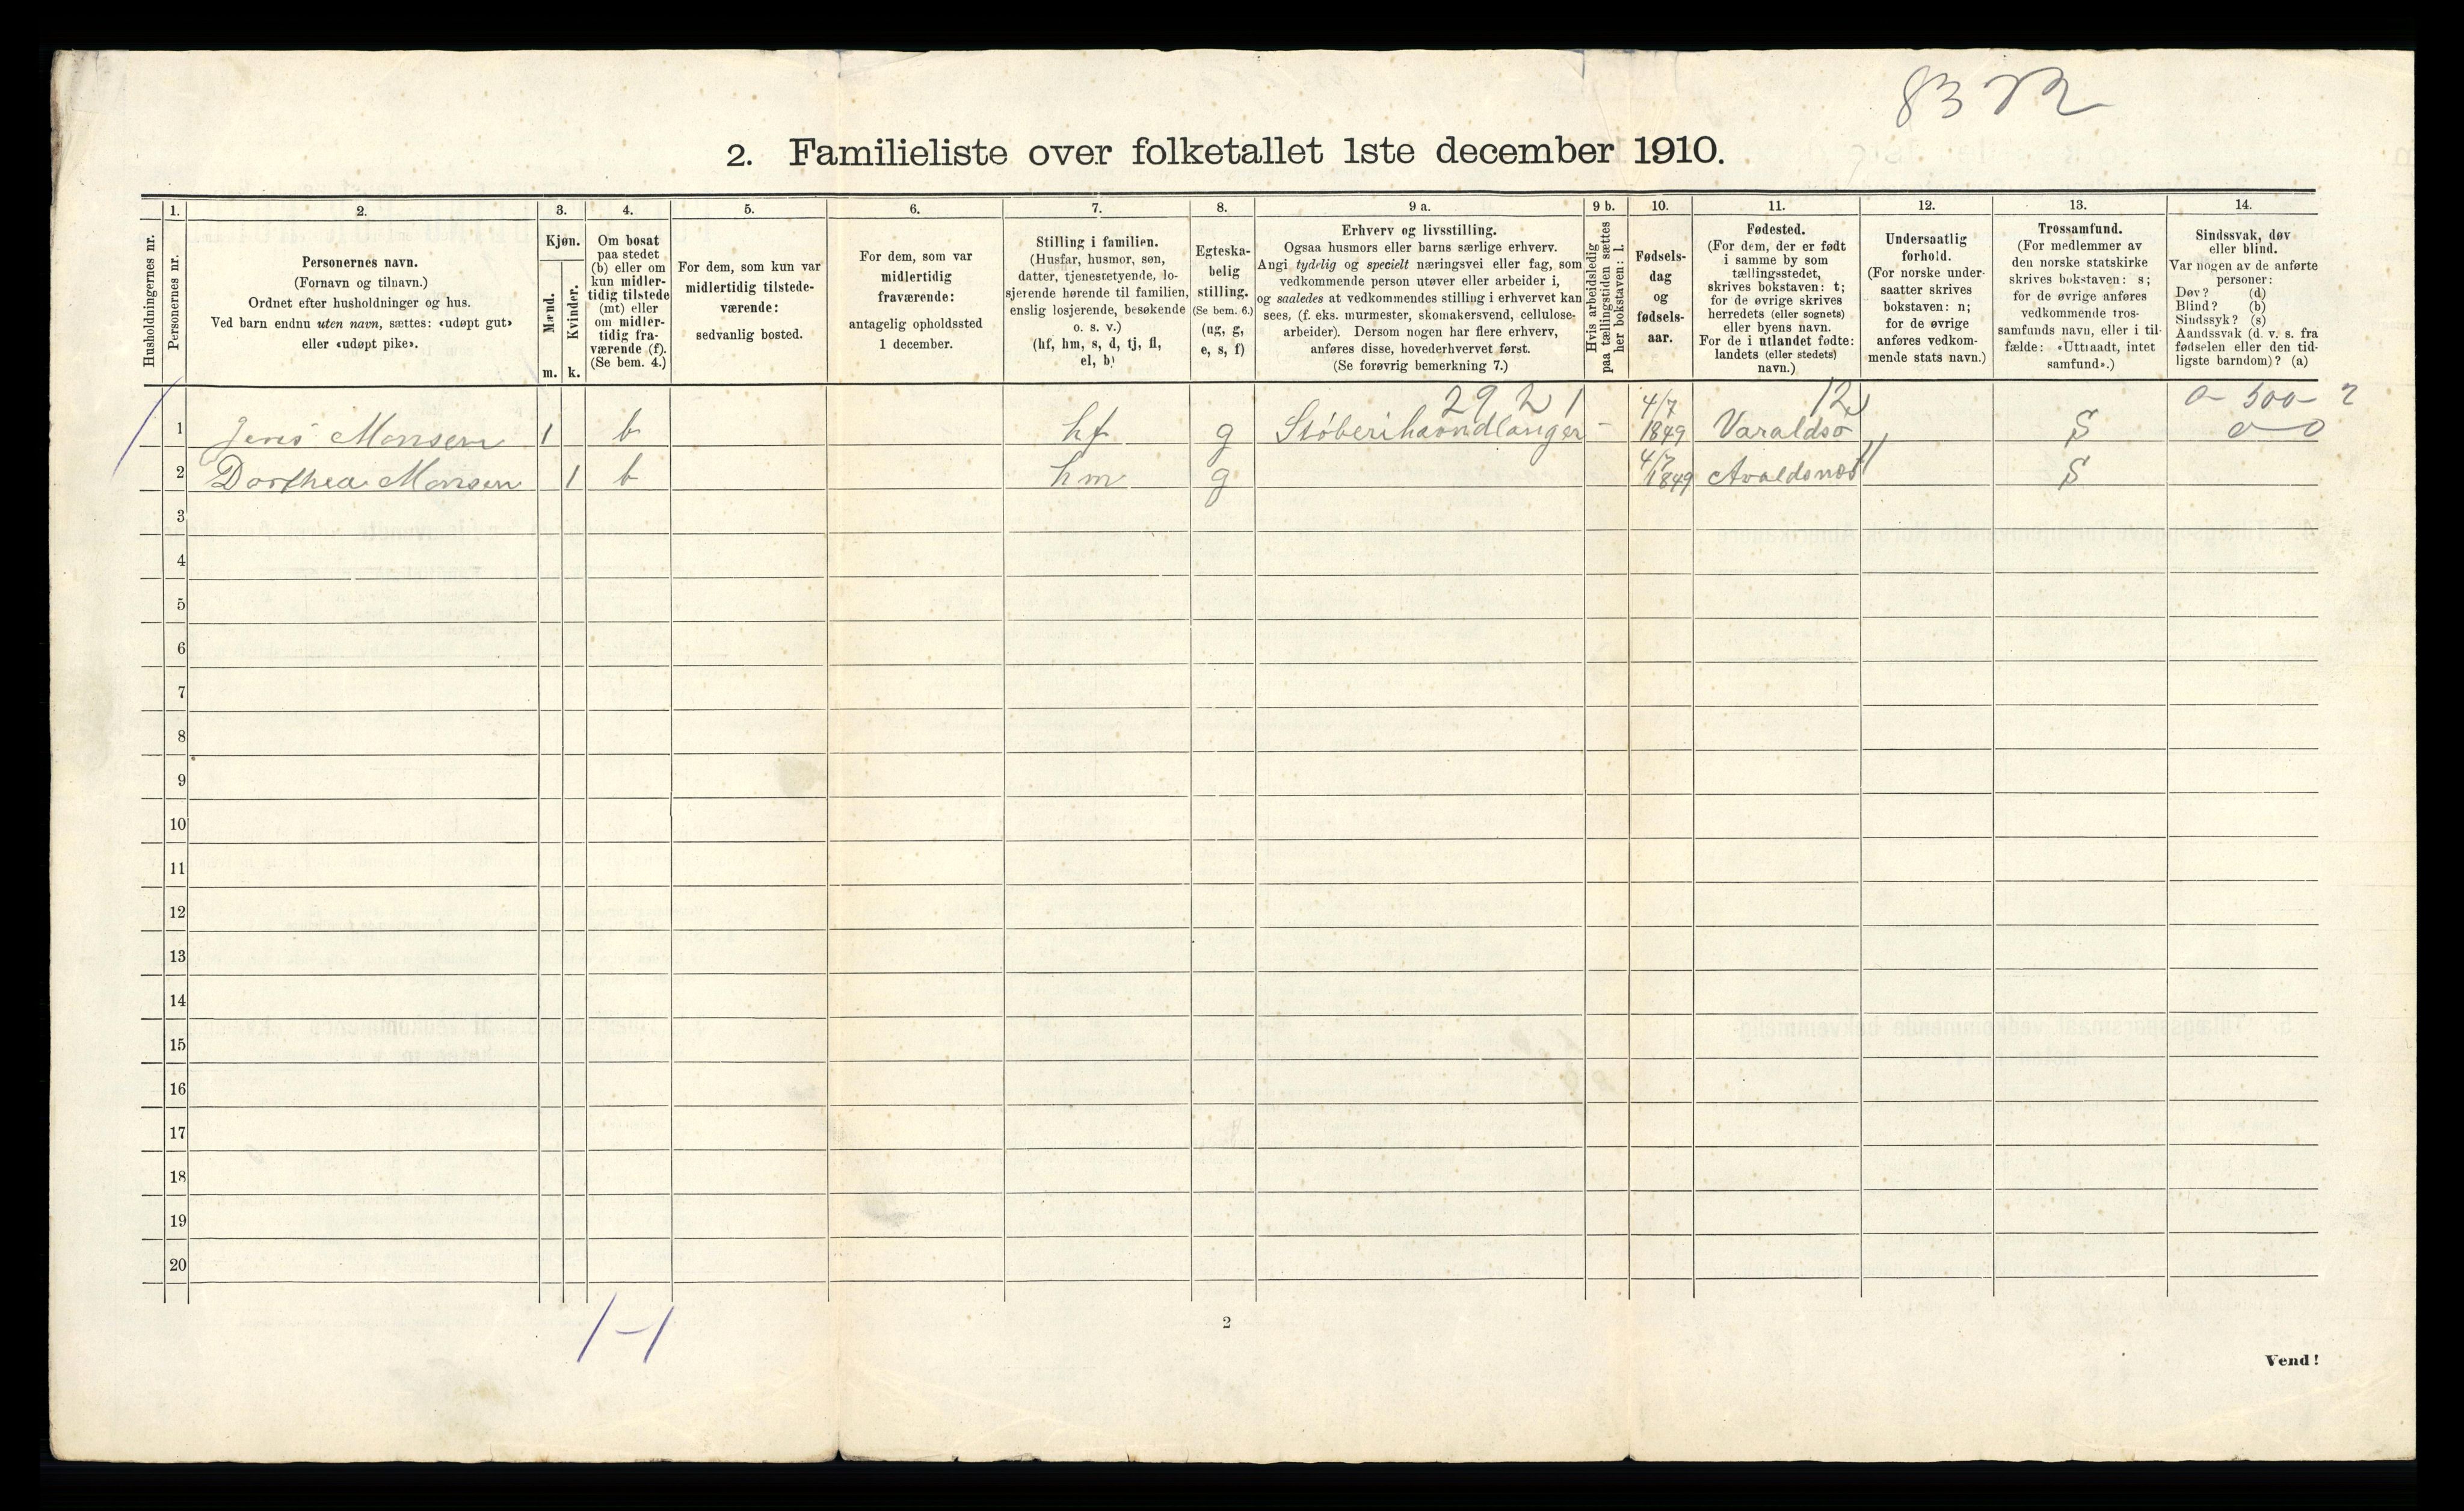 83
2. Familieliste over folketallet 1ste december 1910.
Husholdningernes nr.
1. Personernes nr.
2. Personernes navn.
(Fornavn og tilnavn.)
Ordnet efter husholdninger og hus.
Ved barn endnu uten navn, sættes: «udøpt gut»
eller «udøpt pike».
3. Kjøn.
Mænd. m.
Kvinder. k.
4. Om bosat
paa stedet
(b) eller om
kun midler-
tidig tilstede
(mt) eller
om midler-
tidig fra-
værende (f).
(Se bem. 4.)
5. For dem, som kun var
midlertidig tilstede-
værende:
sedvanlig bosted.
6. For dem, som var
midlertidig
fraværende:
antagelig opholdssted
1 december.
7. Stilling i familien.
(Husfar, husmor, søn,
datter, tjenestetyende, lo-
sjerende hørende til familien,
enslig losjerende, besøkende
o. s. v.)
(hf, hm, s, d, tj, fl,
el, b)
8. Egteska-
belig
stilling.
(Se bem. 6.)
(ug, g,
e, s, f)
9 a. Erhverv og livsstilling.
Ogsaa husmors eller barns særlige erhverv.
Angi tydelig og specielt næringsvei eller fag, som
vedkommende person utøver eller arbeider i,
og saaledes at vedkommendes stilling i erhvervet kan
sees, (f. eks. murmester, skomakersvend, cellulose-
arbeider). Dersom nogen har flere erhverv,
anføres disse, hovederhvervet først.
(Se forøvrig bemerkning 7.)
9 b. Hvis arbeidsledig
paa tællingstiden sættes
her bokstaven: l.
10. Fødsels-
dag
og
fødsels-
aar.
11. Fødested.
(For dem, der er født
i samme by som
tællingsstedet,
skrives bokstaven: t;
for de øvrige skrives
herredets (eller sognets)
eller byens navn.
For de i utlandet fødte:
landets (eller stedets)
navn.)
12. Undersaatlig
forhold.
(For norske under-
saatter skrives
bokstaven: n;
for de øvrige
anføres vedkom-
mende stats navn.)
13. Trossamfund.
(For medlemmer av
den norske statskirke
skrives bokstaven: s;
for de øvrige anføres
vedkommende tros-
samfunds navn, eller i til-
fælde: «Uttraadt, intet
samfund».)
14. Sindssvak, døv
eller blind.
Var nogen av de anførte
personer:
Døv? (d)
Blind? (b)
Sindssyk? (s)
Aandssvak (d. v. s. fra
fødselen eller den tid-
ligste barndom)? (a)
2921 12 0-500-2
1 Jens Monsen 1 b hf g Støberihaandlanger - 4/7 1849 Varaldsø S 0 0
2 Dorthea Monsen 1 b hm g 4/7 1849 Avaldsnæs 11 S
3
4
5
6
7
8
9
10
11
12
13
14
15
16
17
18
19
20
1-1
2
Vend!